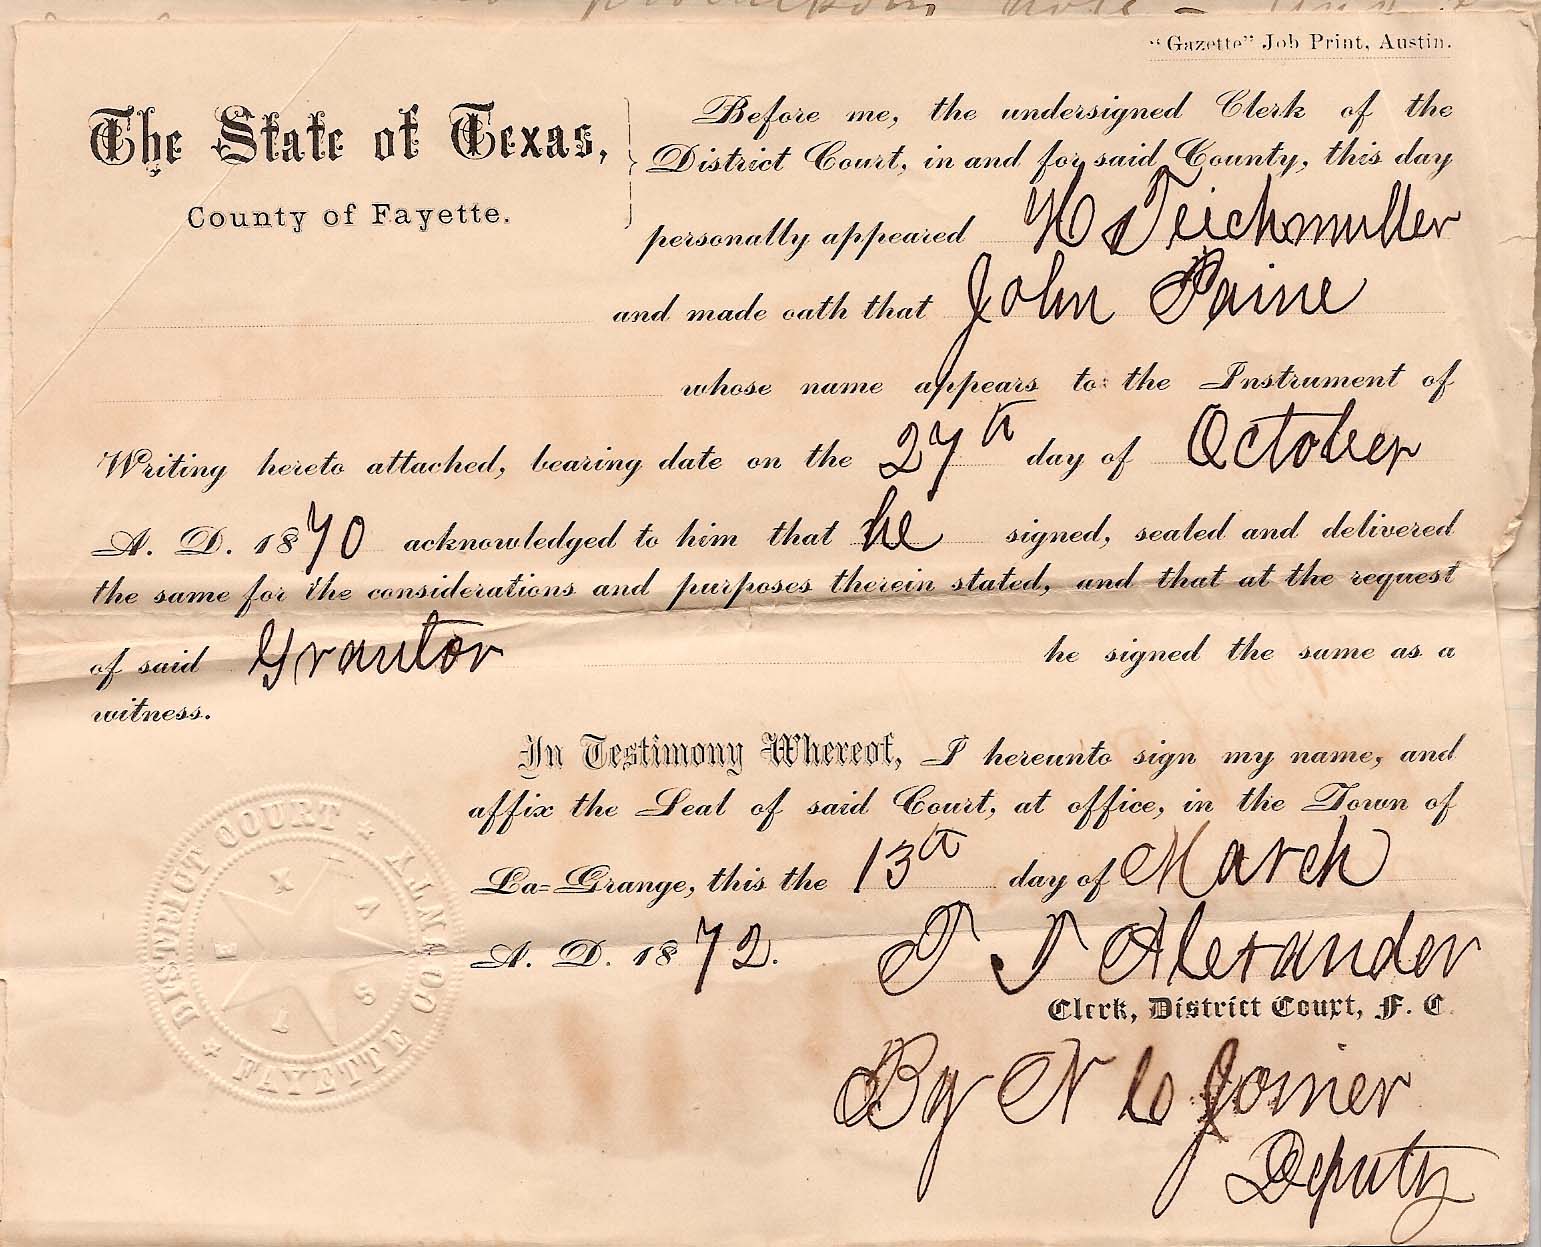 "Gazette" Job Print, Austin.
The State of Texas,
County of Fayette.
Before me, the undersigned Clerk of the
District Court, in and for said County, this day
personally appeared H Teichmuller
and made oath that John Paine
whose name appears to the Instrument of
Writing hereto attached, bearing date on the 27th day of October
A. D. 1870 acknowledged to him that he signed, sealed and delivered
the same for the considerations and purposes therein stated, and that at the request
of said Grantor he signed the same as a
witness.
In Testimony Whereof, I hereunto sign my name, and
affix the Seal of said Court, at office, in the Town of
La-Grange, this the 13th day of March
A. D. 1872.
T T Alexander
Clerk, District Court, F. C.
By N C Joiner
Deputy
DISTRICT COURT
FAYETTE COUNTY
TEXAS